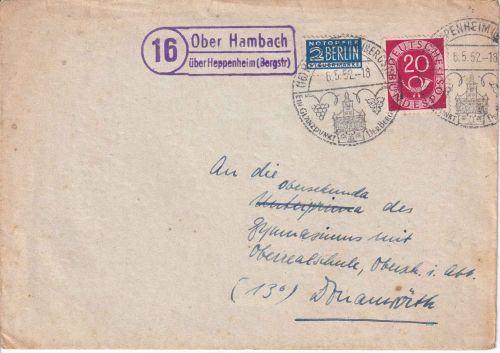 16
Ober Hambach
über Heppenheim (Bergstr)
NOTOPFER
2 BERLIN
STEUERMARKE
DEUTSCHE
20
BUNDESPOST
6.5.52-18
EIN GLANZPUNKT
DER BERG
HEPPENHEIM
6.5.52-18
An die
Obersekunda
Unterprima des
Gymnasiums mit
Oberrealschule, Obersk. i. Abt.
(13) Donauwörth